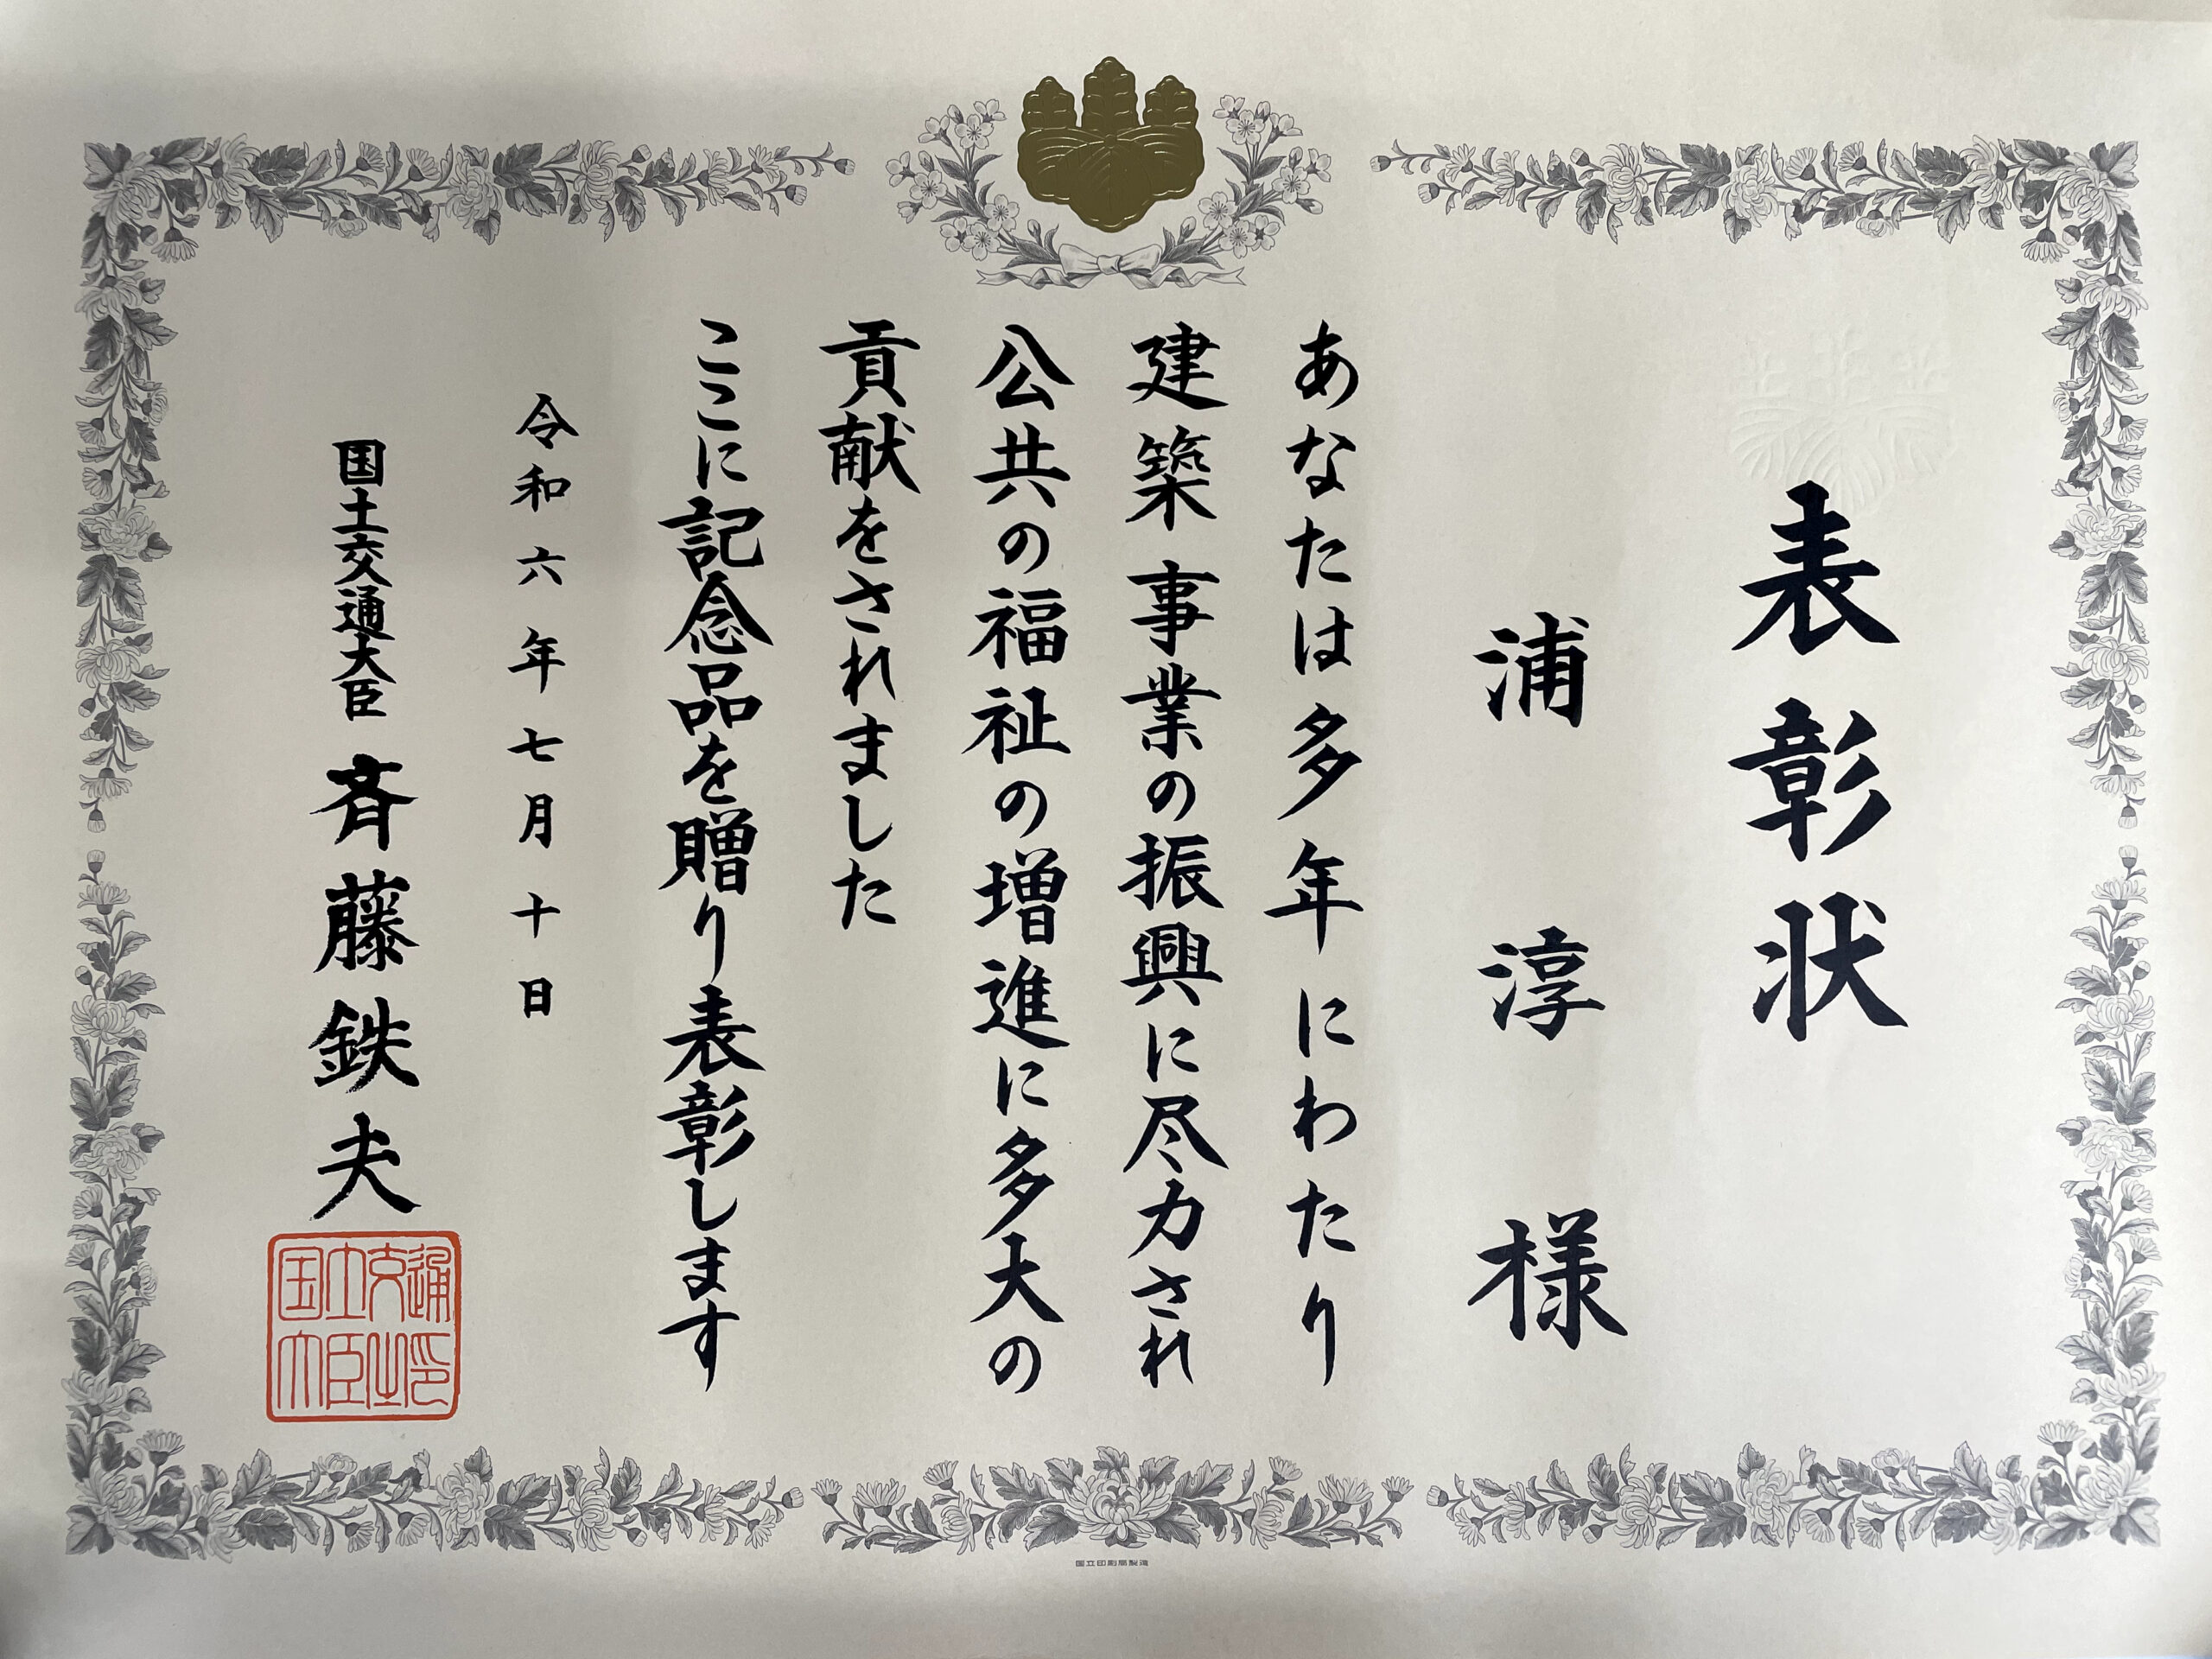 表彰状
浦淳様
あなたは多年にわたり
建築事業の振興に尽力され
公共の福祉の増進に多大の
貢献をされました
ここに記念品を贈り表彰します
令和六年七月十日
国土交通大臣 斉藤鉄夫
国土交通
大臣之印
国立印刷局製造